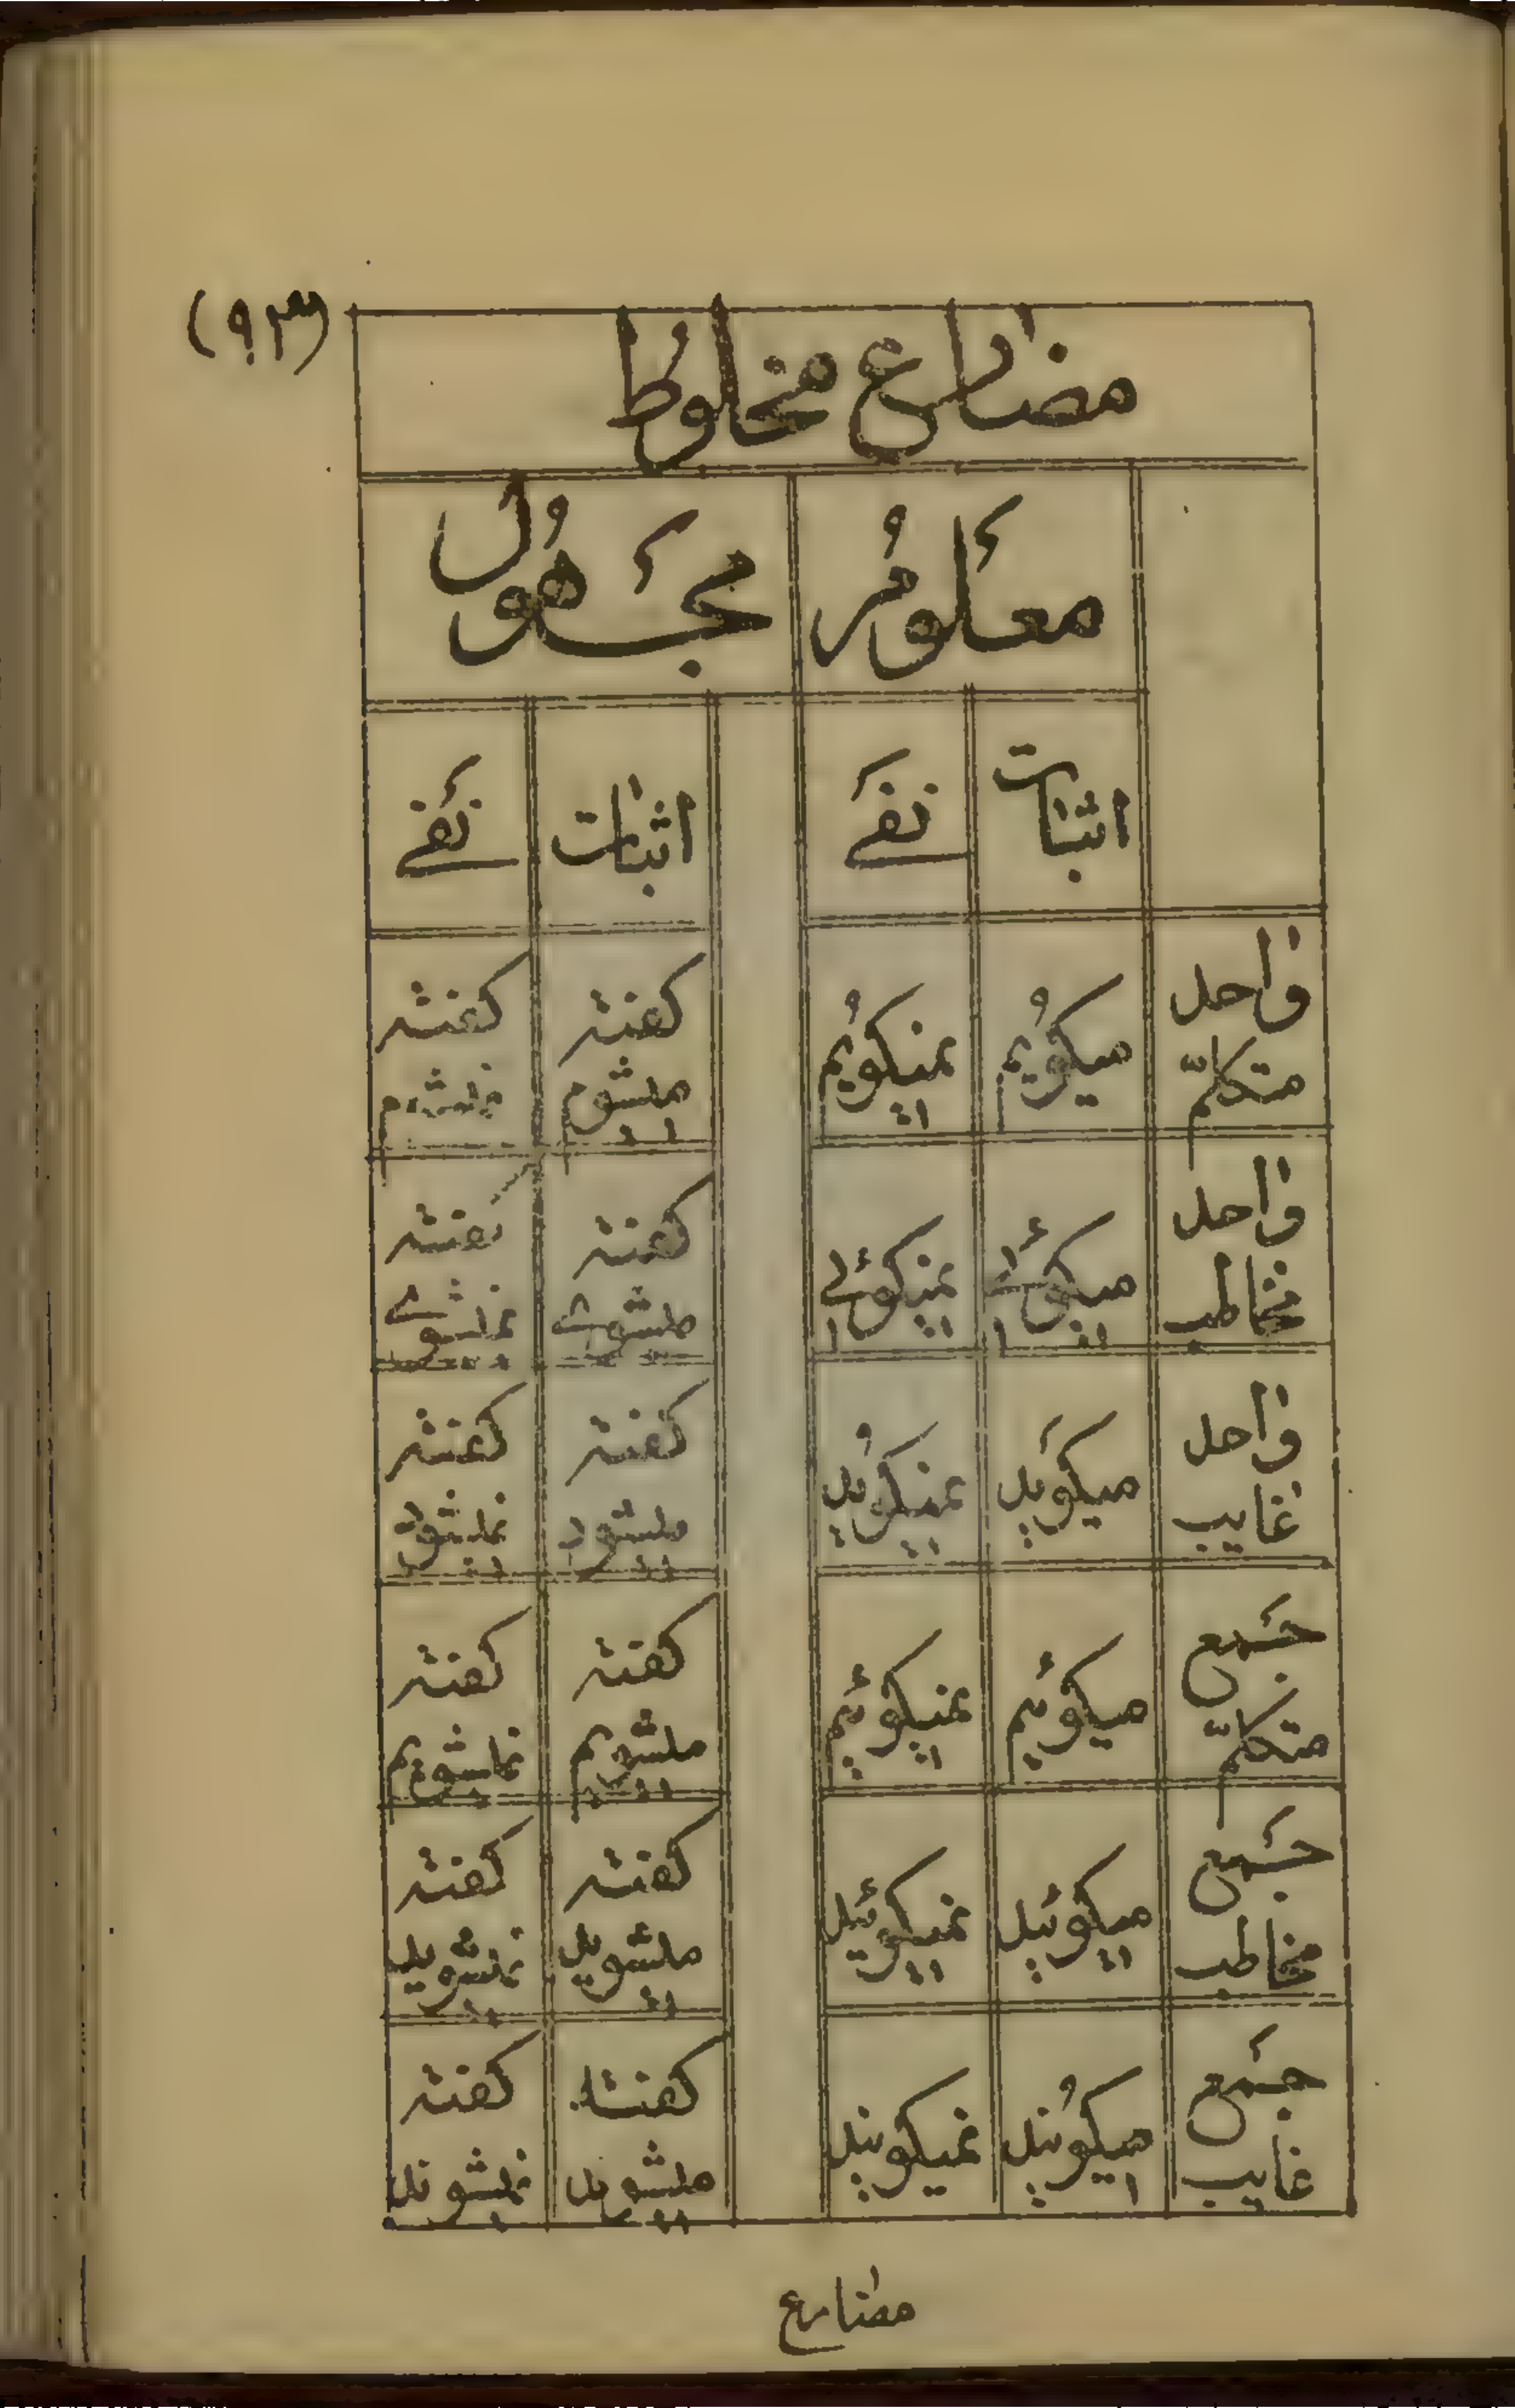 (٩٣)
مضارع مخلوط
معلوم مجهول
اثبات نفے اثبات نفے
واحد متكلّم میكویم نمیكویم كفته میشوم كفته نمیشوم
واحد مخاطب میكوئے نمیكوئے كفته میشوے كفته نمیشوے
واحد غایب میكوید نمیكوید كفته میشود كفته نمیشود
جمع متكلّم میكوئیم نمیكوئیم كفته میشویم كفته نمیشویم
جمع مخاطب میكوئید نمیكوئید كفته میشوید كفته نمیشوید
جمع غایب میكویند نمیكویند كفته میشوند كفته نمیشوند
مضارع